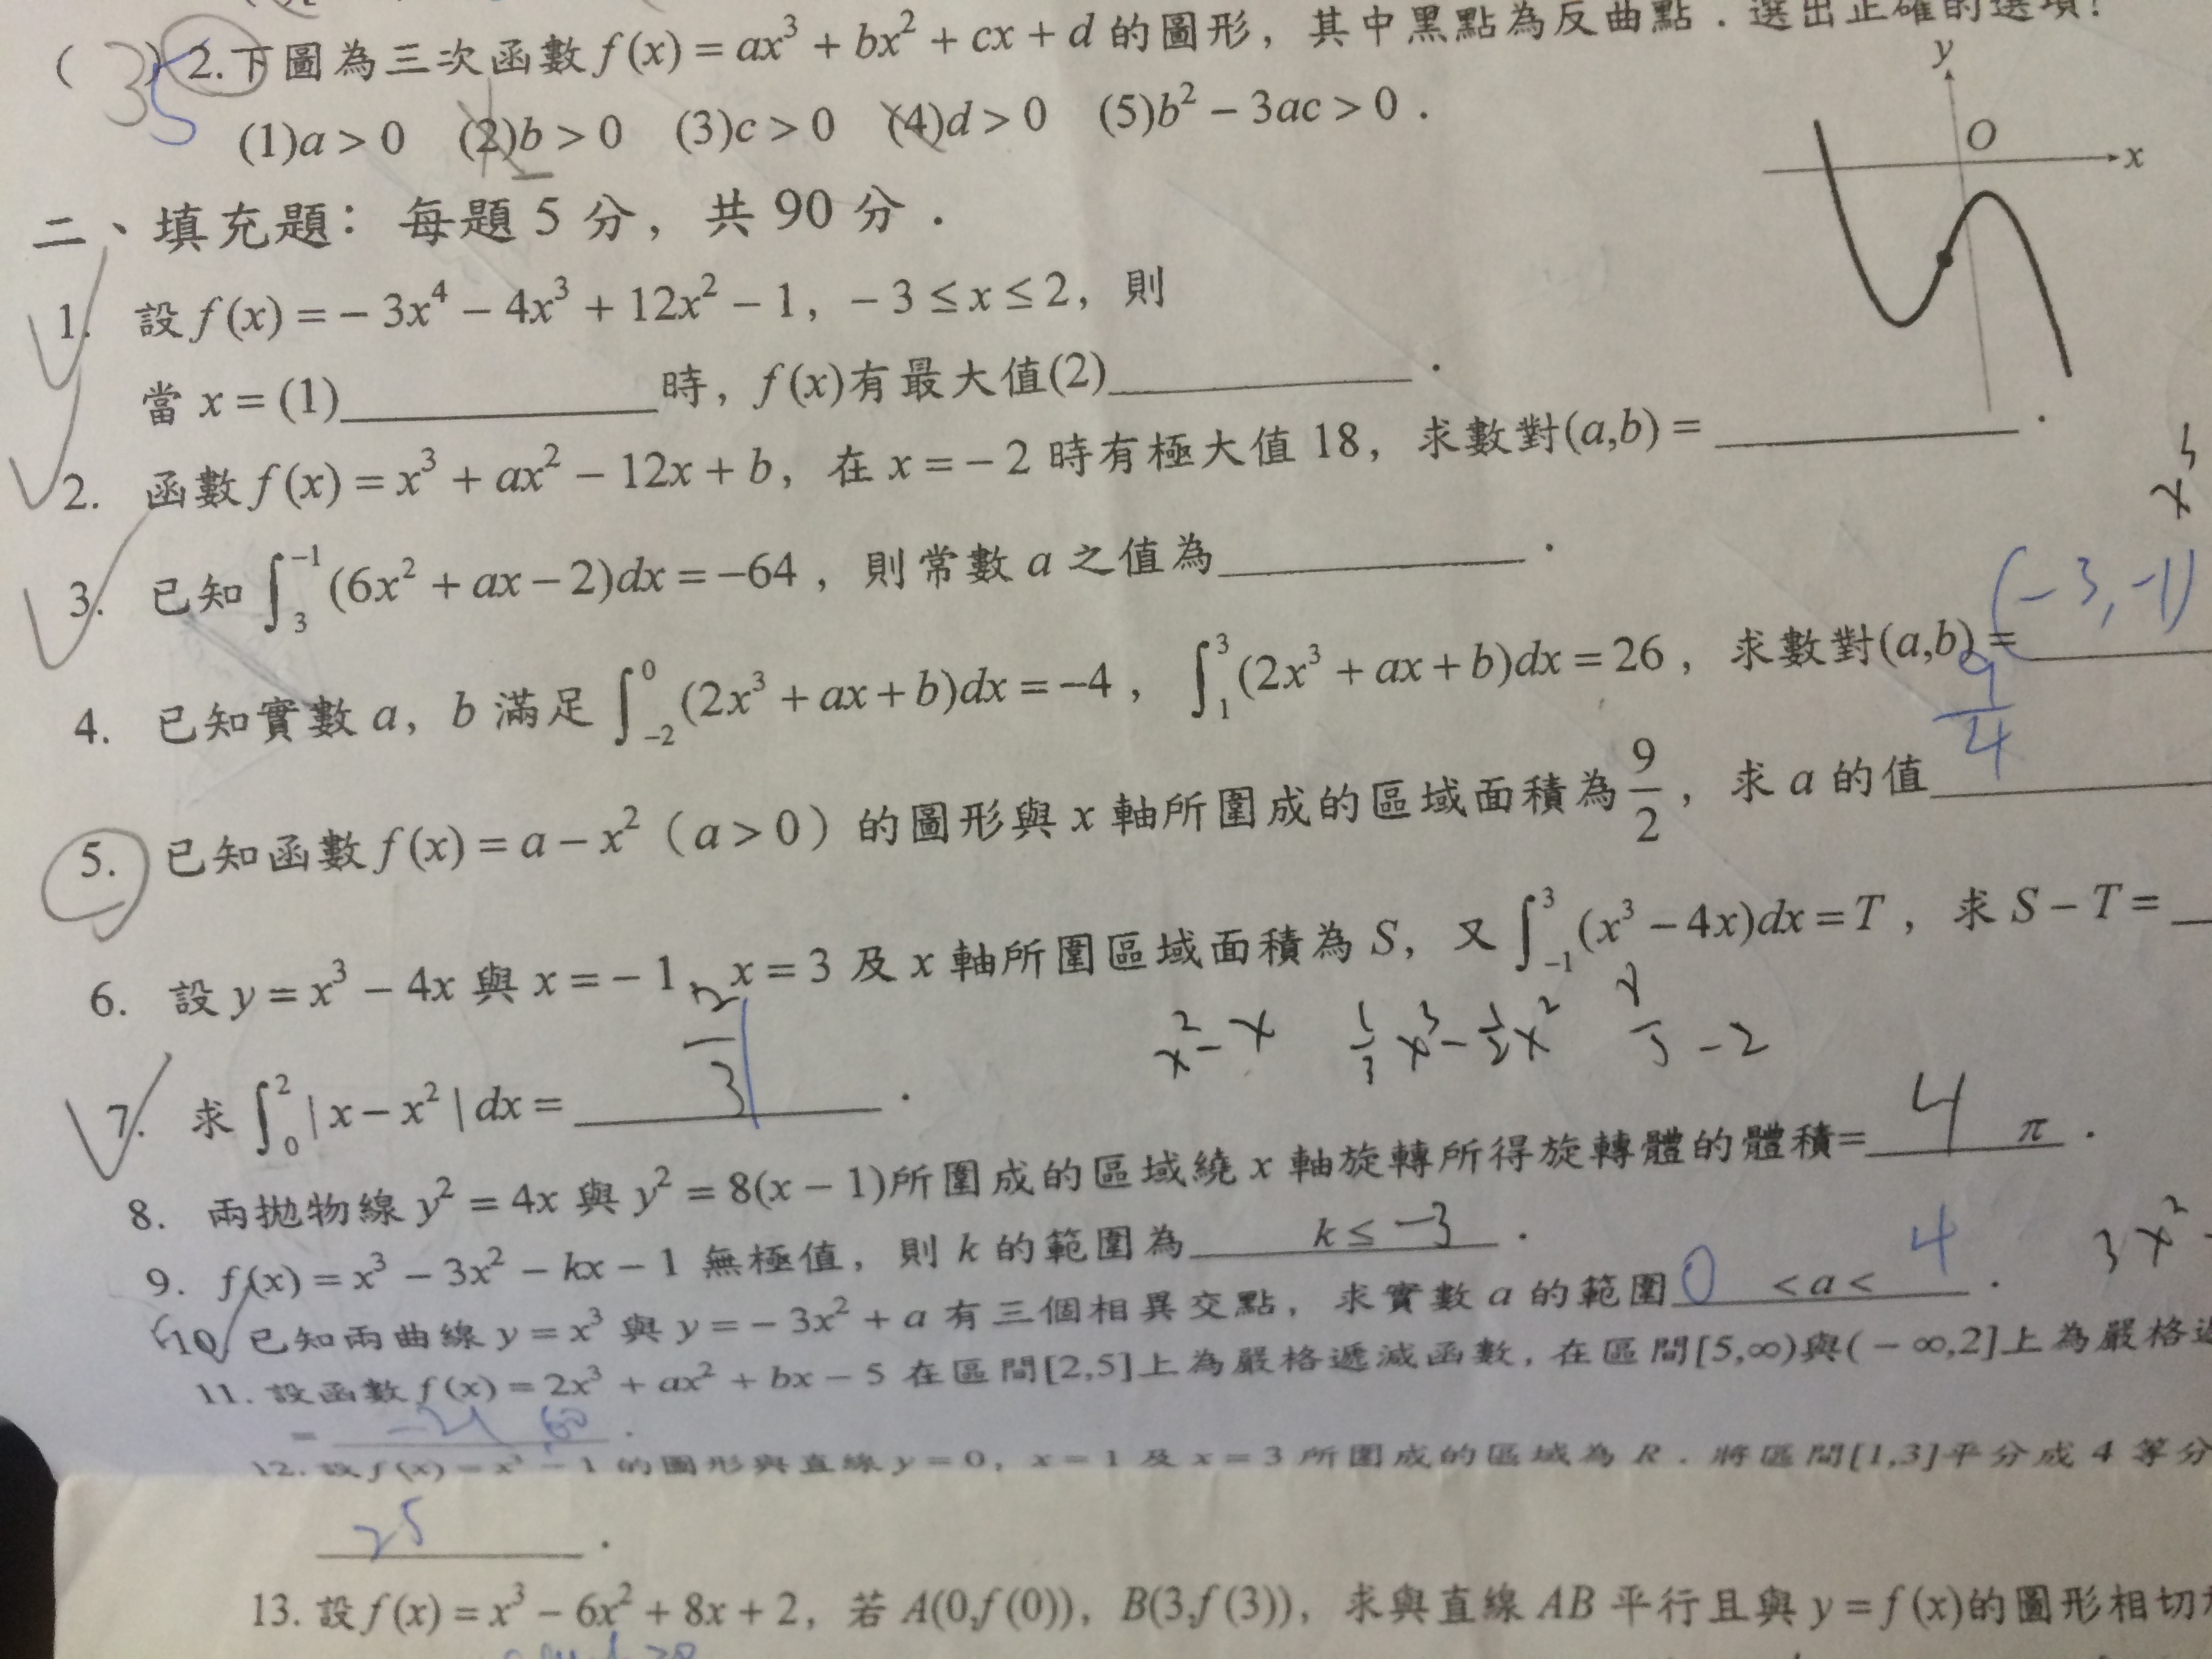 ( ) 2.下圖為三次函數 f(x) = ax³ + bx² + cx + d 的圖形，其中黑點為反曲點．選出正確的選項！
35
(1)a > 0 (2)b > 0 (3)c > 0 (4)d > 0 (5)b² − 3ac > 0．
y
O
x
二、填充題：每題 5 分，共 90 分．
1. 設 f(x) = − 3x⁴ − 4x³ + 12x² − 1，− 3 ≤ x ≤ 2，則
當 x = (1)____時，f(x)有最大值(2)____．
2. 函數 f(x) = x³ + ax² − 12x + b，在 x = − 2 時有極大值 18，求數對(a,b) = ____．
3. 已知 ∫₃⁻¹ (6x² + ax − 2)dx = −64，則常數 a 之值為____．
4. 已知實數 a，b 滿足 ∫₋₂⁰ (2x³ + ax + b)dx = −4，∫₁³ (2x³ + ax + b)dx = 26，求數對(a,b) = (−3, −1)
5. 已知函數 f(x) = a − x²（a > 0）的圖形與 x 軸所圍成的區域面積為 9/2，求 a 的值 9/4
6. 設 y = x³ − 4x 與 x = − 1、x = 3 及 x 軸所圍區域面積為 S，又 ∫₋₁³ (x³ − 4x)dx = T，求 S − T =
x² − x 1/3 x³ − 1/2 x²
7. 求 ∫₀² | x − x² | dx = ____．
8. 兩拋物線 y² = 4x 與 y² = 8(x − 1)所圍成的區域繞 x 軸旋轉所得旋轉體的體積= 4 π．
9. f(x) = x³ − 3x² − kx − 1 無極值，則 k 的範圍為 k ≤ −3．
10. 已知兩曲線 y = x³ 與 y = − 3x² + a 有三個相異交點，求實數 a 的範圍 0 < a < 4．
3x²
11. 設函數 f(x) = 2x³ + ax² + bx − 5 在區間[2,5]上為嚴格遞減函數，在區間[5,∞)與(− ∞,2]上為嚴格
= −21 60．
12. 設 f(x) = x³ − 1 的圖形與直線 y = 0，x = 1 及 x = 3 所圍成的區域為 R．將區間[1,3]平分成 4 等分
25．
13. 設 f(x) = x³ − 6x² + 8x + 2，若 A(0,f(0))，B(3,f(3))，求與直線 AB 平行且與 y = f(x)的圖形相切